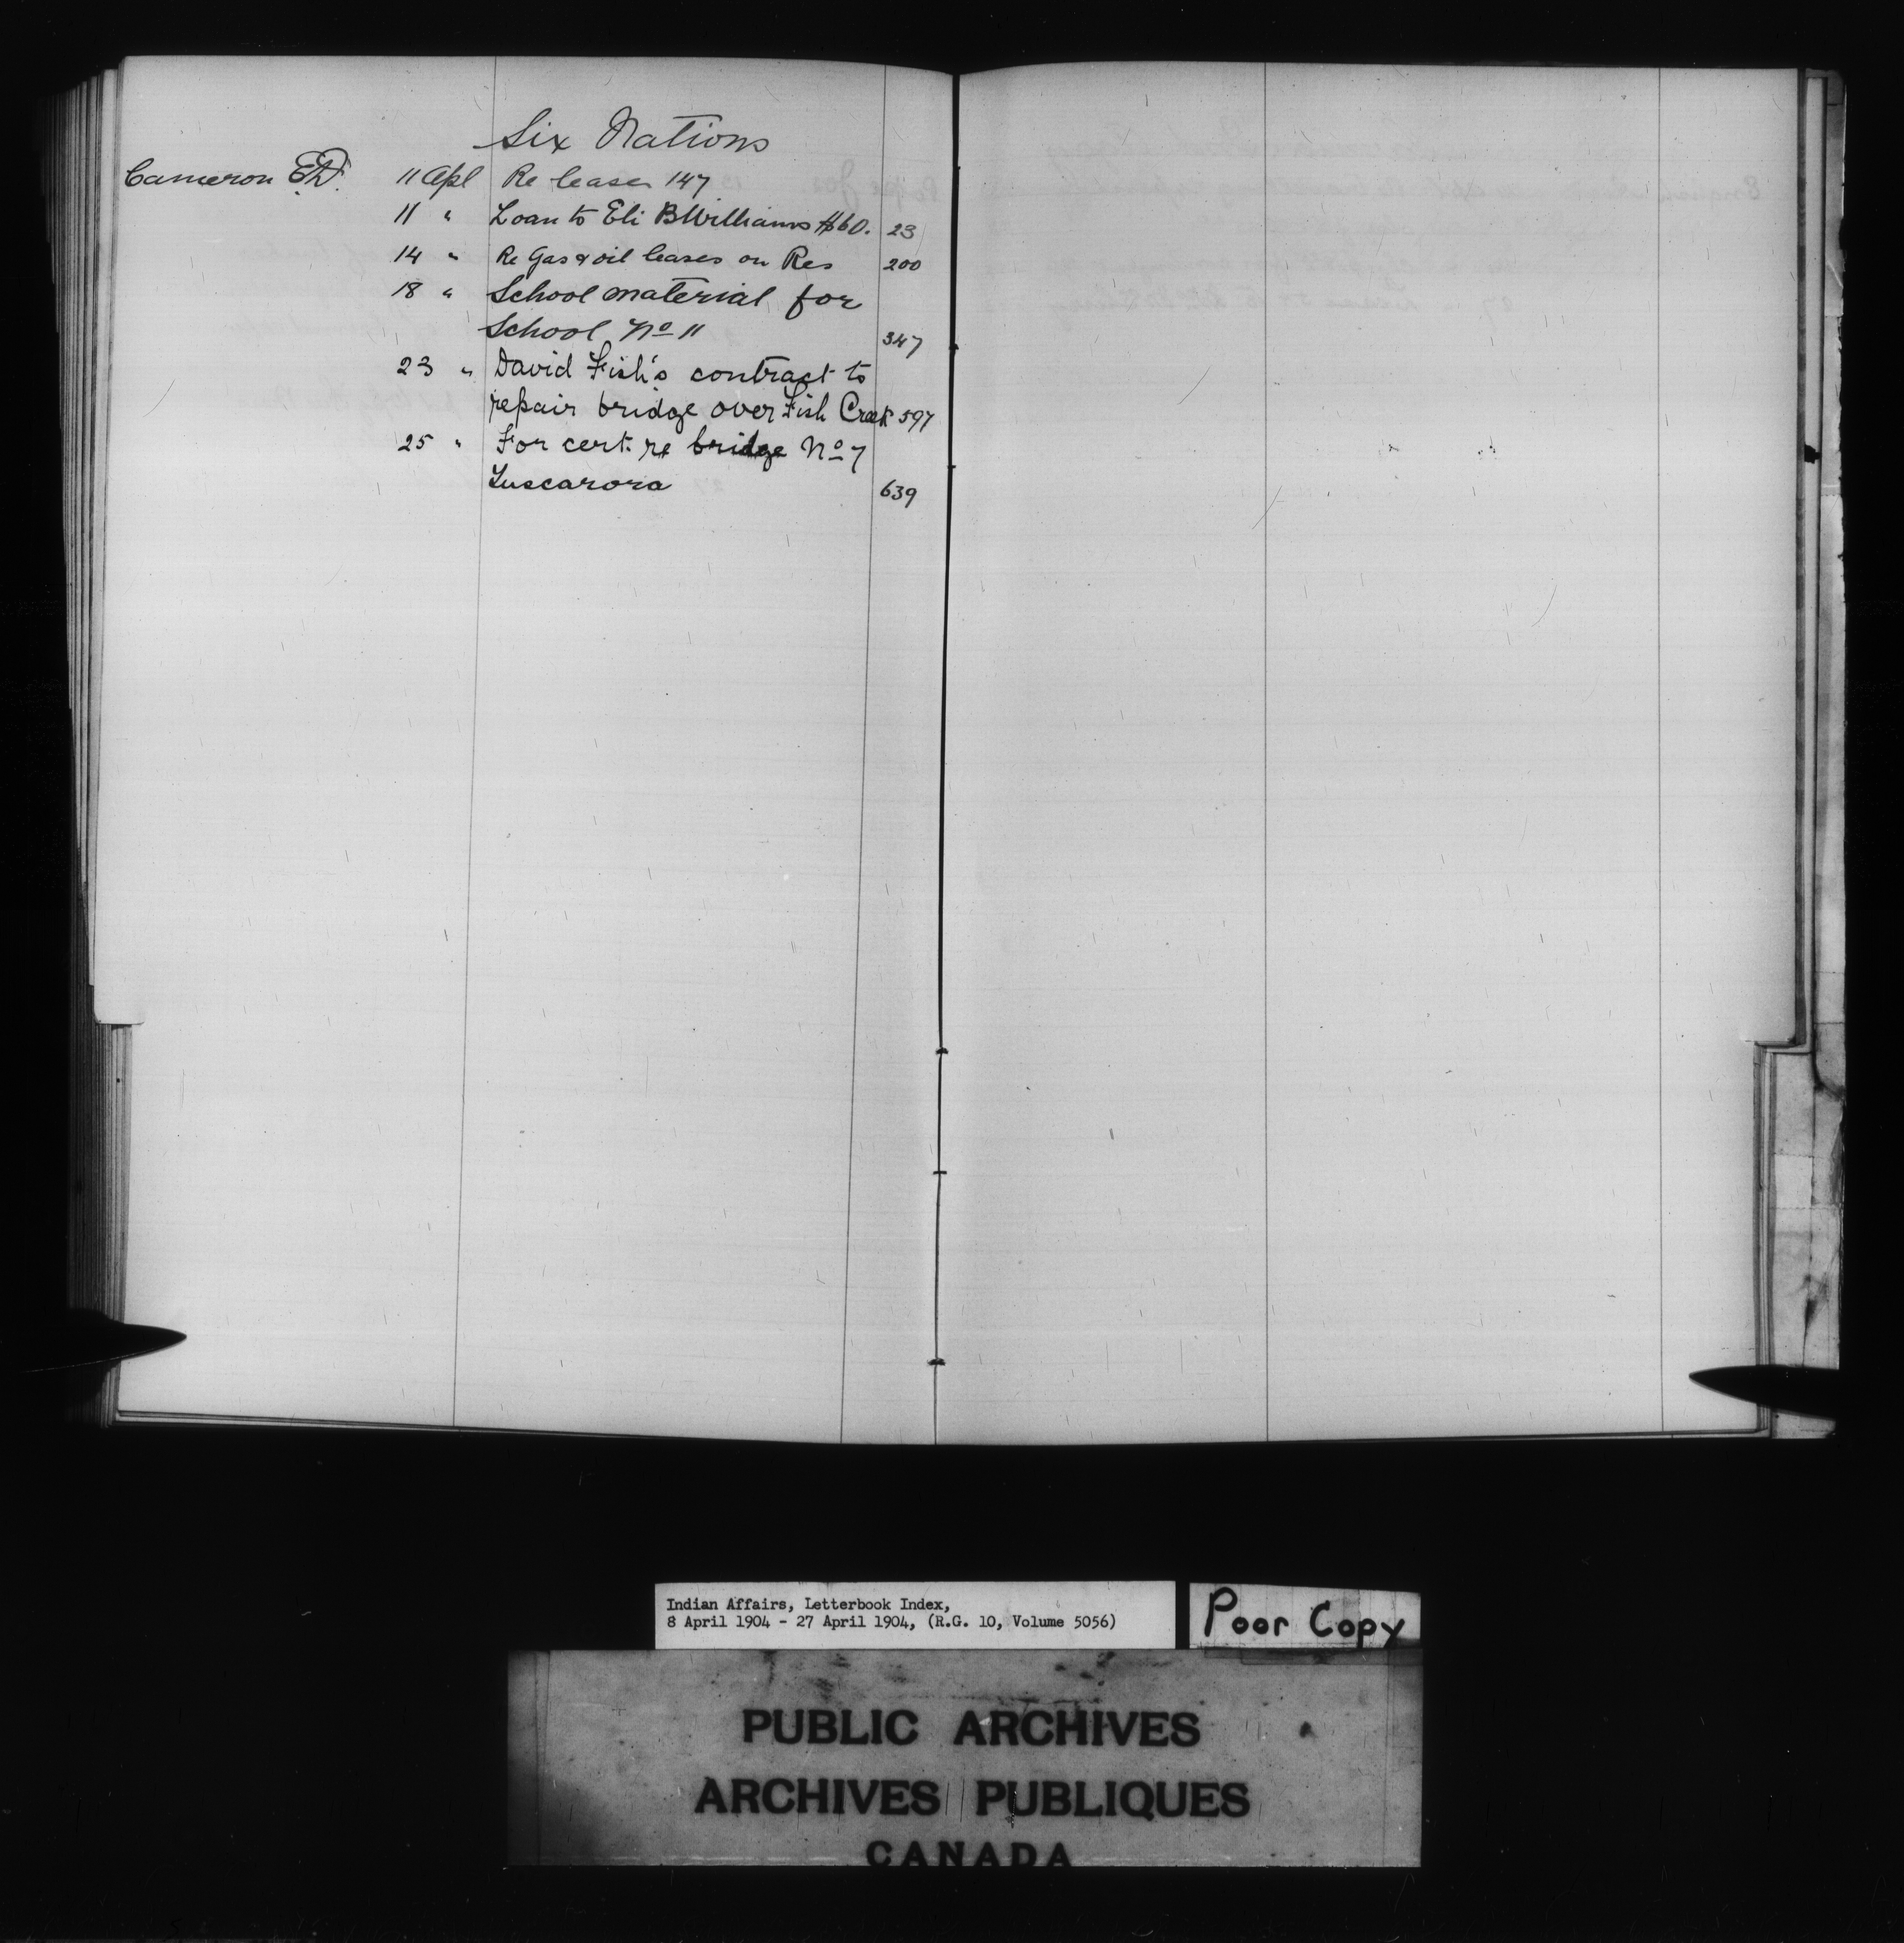 Six Nations
Cameron E.D. 11 Apl Re leases 147
11 " Loan to Eli B Williams $60. 23
14 " Re Gas & oil leases on Res 200
18 " School material for
School No 11 347
23 " David Fish's contract to
repair bridge over Fish Creek 597
25 " For cert. re bridge No 7
Tuscarora 639
Indian Affairs, Letterbook Index,
8 April 1904 - 27 April 1904, (R.G. 10, Volume 5056)
Poor Copy
PUBLIC ARCHIVES
ARCHIVES PUBLIQUES
CANADA